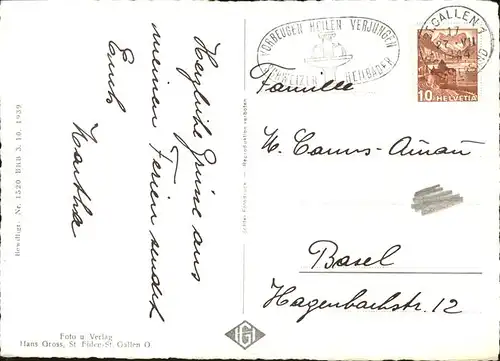 Herzliche Grüsse aus
meinen Ferien sendet
Euch
Martha
Bewilligt. Nr. 1520 BRB 3. 10. 1939
Foto u Verlag
Hans Gross, St. Fiden-St. Gallen O.
Reproduktion verboten
VORBEUGEN HEILEN VERJÜNGEN
SCHWEIZER HEILBÄDER
ST. GALLEN 1
17. VII
10 HELVETIA
Familie
Basel
Hagenbachstr. 12